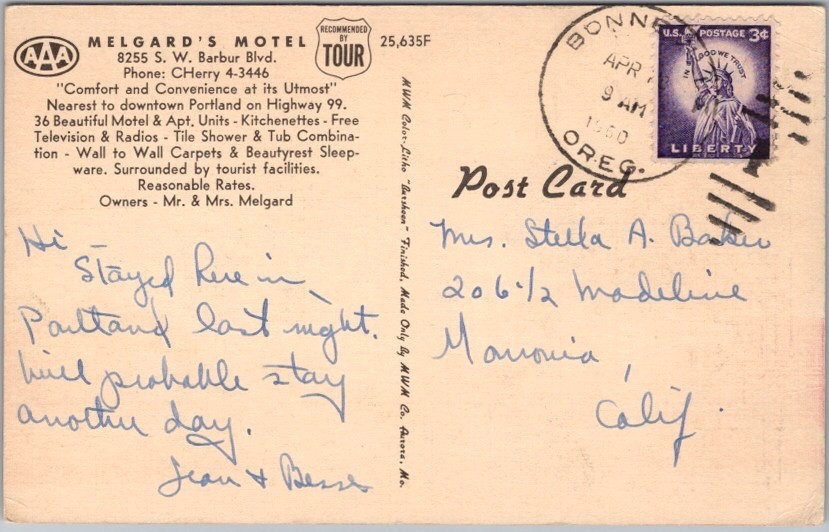 AAA
MELGARD'S MOTEL
8255 S. W. Barbur Blvd.
Phone: CHerry 4-3446
"Comfort and Convenience at its Utmost"
Nearest to downtown Portland on Highway 99.
36 Beautiful Motel & Apt. Units - Kitchenettes - Free
Television & Radios - Tile Shower & Tub Combina-
tion - Wall to Wall Carpets & Beautyrest Sleep-
ware. Surrounded by tourist facilities.
Reasonable Rates.
Owners - Mr. & Mrs. Melgard
RECOMMENDED
BY
TOUR
25,635F
Hi -
Stayed here in
Portland last night.
Will probable stay
another day.
Jean &
MWM Color-Litho "Aursheen" Finished, Made Only By MWM Co. Aurora, Mo.
BONNE
APR
9 AM
1960
OREG.
U.S. POSTAGE 3¢
IN GOD WE TRUST
LIBERTY
Post Card
Mrs. Stella A. Baker
206-1/2 Madeline
Monrovia,
Calif.